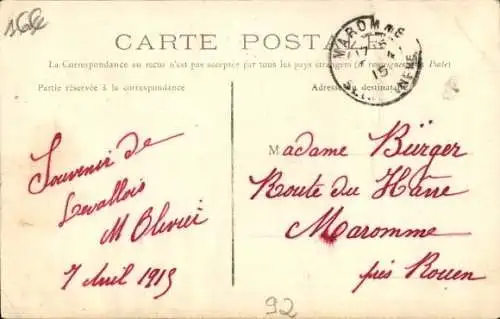 166
CARTE POSTALE
La Correspondance au recto n'est pas acceptée par tous les pays étrangers (se renseigner à la Poste)
Partie réservée à la correspondance
Adresse du destinataire
MAROMME
15
Souvenir de
Levallois
M Olivier
7 Avril 1915
Madame Bürger
Route du Hâvre
Maromme
près Rouen
92